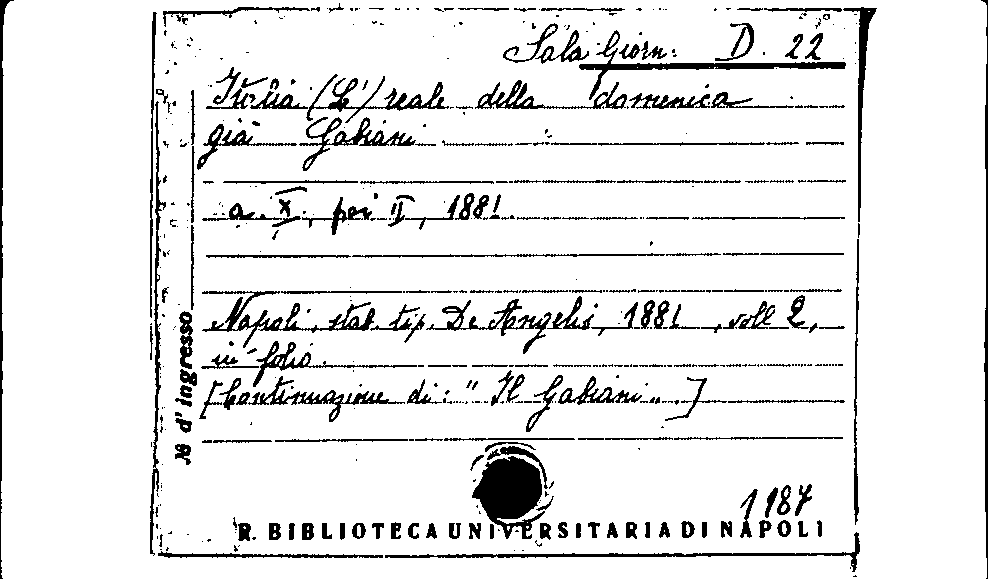 Sala Giorn: D. 22
Italia (L') reale della domenica
già Gabiani
a. X, per II, 1881.
Napoli, stab. tip. De Angelis, 1881, voll 2,
in-folio.
[Continuazione di: " Il Gabiani ".]
№ d'ingresso
1187
R. BIBLIOTECA UNIVERSITARIA DI NAPOLI